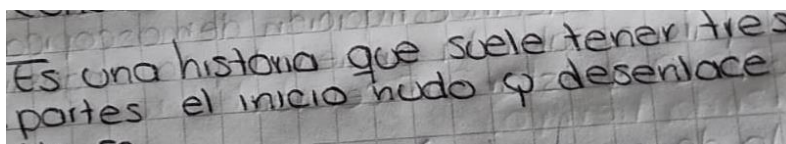 Es una historia que suele tener tres
partes el inicio nudo y desenlace